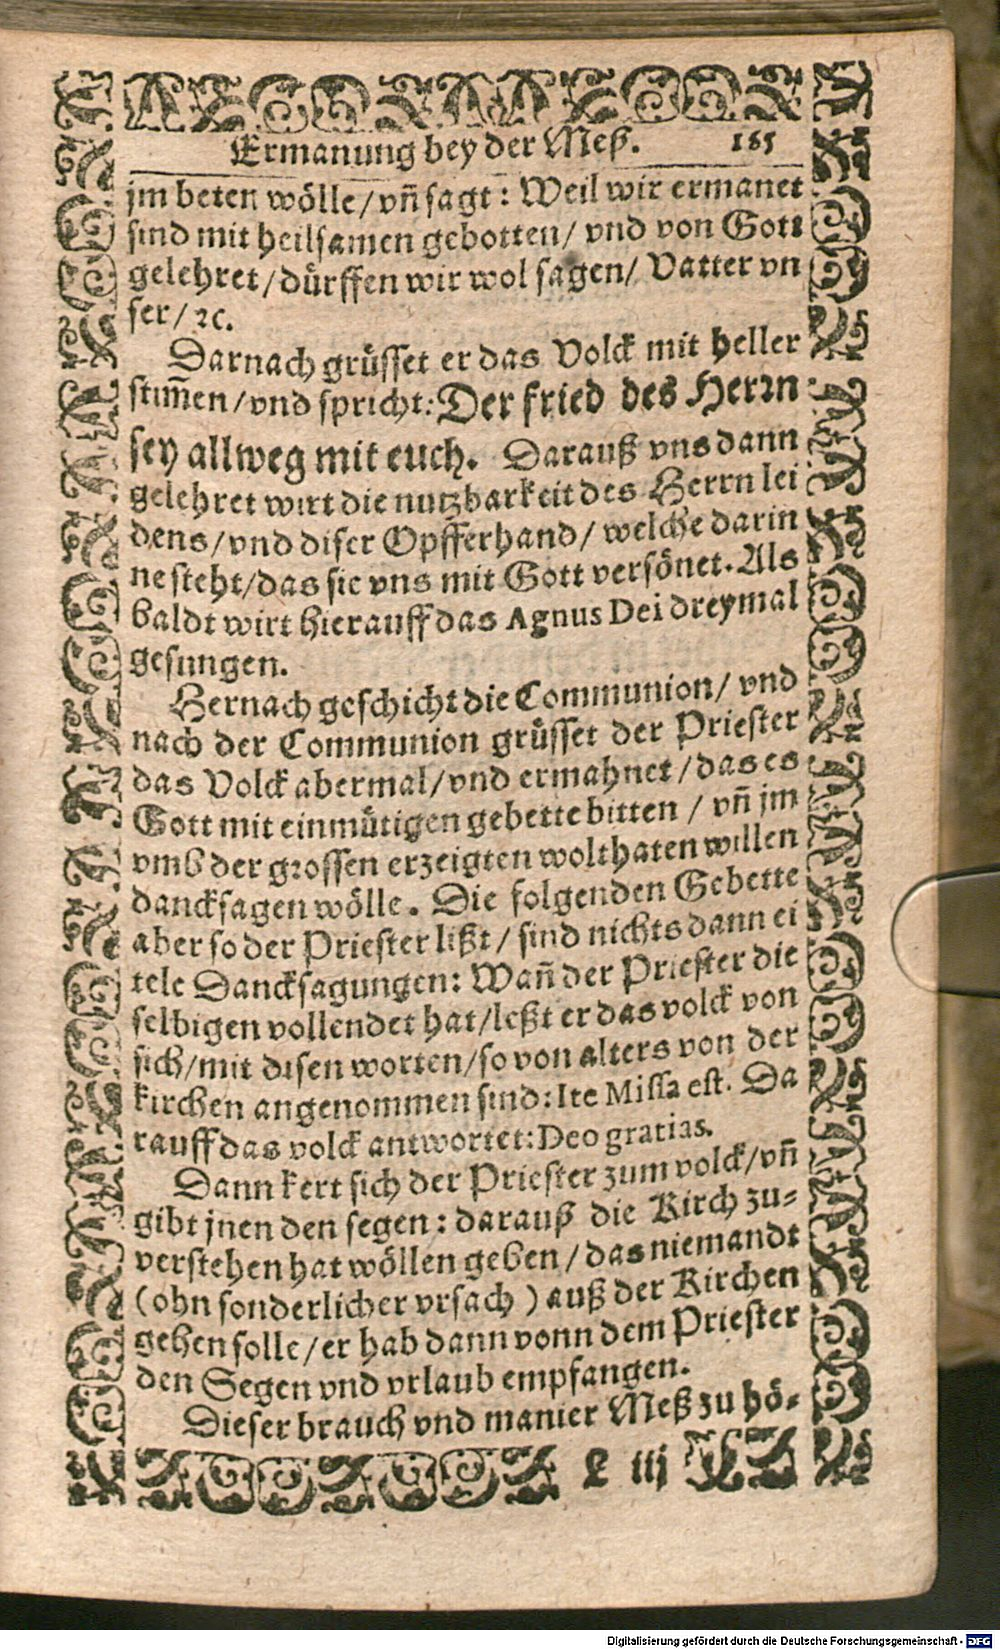 Ermanung bey der Meß. 165
jm beten wölle / vñ sagt: Weil wir ermanet
sind mit heilsamen gebotten / vnd von Gott
gelehret / dürffen wir wol sagen / Vatter vn
ser / ꝛc.
Darnach grüsset er das Volck mit heller
stim̃en / vnd spricht: Der fried des Herrn
sey allweg mit euch. Darauß vns dann
gelehret wirt die nutzbarkeit des Herrn lei
dens / vnd diser Opfferhand / welche darin
ne steht / das sie vns mit Gott versönet. Als
baldt wirt hierauff das Agnus Dei dreymal
gesungen.
Hernach geschicht die Communion / vnd
nach der Communion grüsset der Priester
das Volck abermal / vnd ermahnet / das es
Gott mit einmütigen gebette bitten / vñ jm
vmb der grossen erzeigten wolthaten willen
dancksagen wölle. Die folgenden Gebette
aber so der Priester lißt / sind nichts dann ei
tele Dancksagungen: Wañ der Priester die
selbigen vollendet hat / leßt er das volck von
sich / mit disen worten / so von alters von der
kirchen angenommen sind: Ite Missa est. Da
rauff das volck antwortet: Deo gratias.
Dann kert sich der Priester zum volck / vñ
gibt jnen den segen: darauß die Kirch zu-
verstehen hat wöllen geben / das niemandt
(ohn sonderlicher vrsach) auß der Kirchen
gehen solle / er hab dann vonn dem Priester
den Segen vnd vrlaub empfangen.
Dieser brauch vnd manier Meß zu hö-
L iij
Digitalisierung gefördert durch die Deutsche Forschungsgemeinschaft - DFG